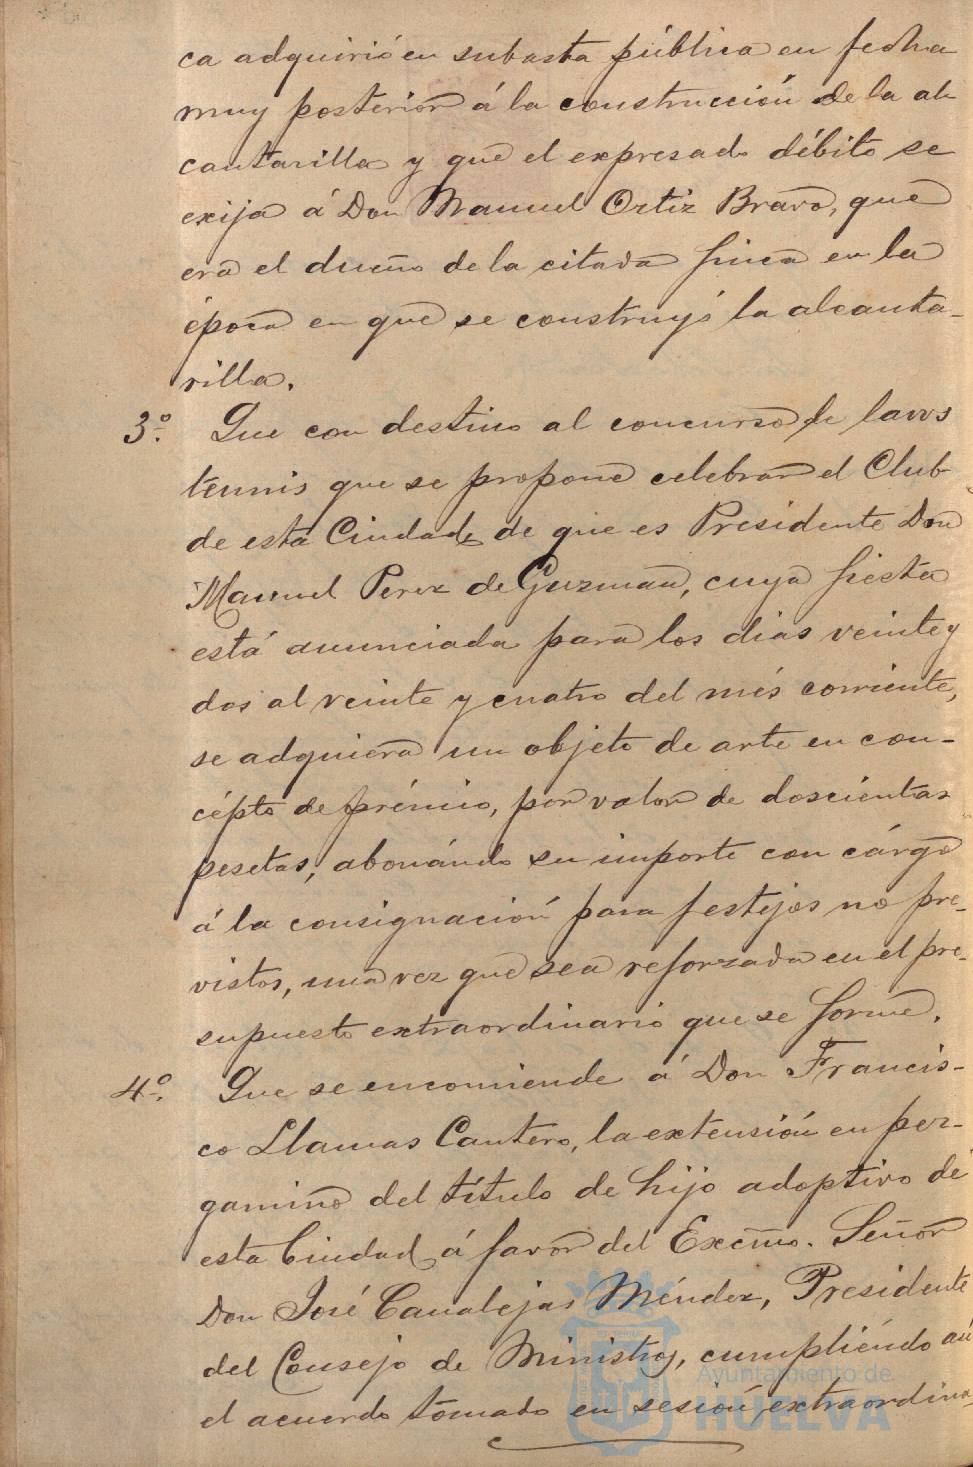 ca adquirió en subasta pública en fecha
muy posterior á la construcción de la al-
cantarilla y que el expresado débito se
exija á Don Manuel Ortiz Bravo, que
era el dueño de la citada finca en la
época en que se construyó la alcanta-
rilla.
3.º Que con destino al concurso de laws
tennis que se propone celebrar el Club
de esta Ciudad, de que es Presidente Don
Manuel Perez de Guzman, cuya fiesta
está anunciada para los dias veinte y
dos al veinte y cuatro del més corriente,
se adquiera un objeto de arte en con-
cépto de prémio, por valor de doscientas
pesetas, abonándo su importe con cárgo
á la consignación para festejos no pre-
vistos, una vez que sea reforzada en el pre-
supuesto extraordinario que se forme.
4.º Que se encomiende á Don Francis-
co Llamas Cantero, la extensión en per-
gamino del título de hijo adoptivo de
esta Ciudad á favor del Excmo. Señor
Don José Canalejas Méndez, Presidente
del Consejo de Ministros, cumpliéndo así
el acuerdo tomado en sesión extraordina-
Ayuntamiento de
HUELVA